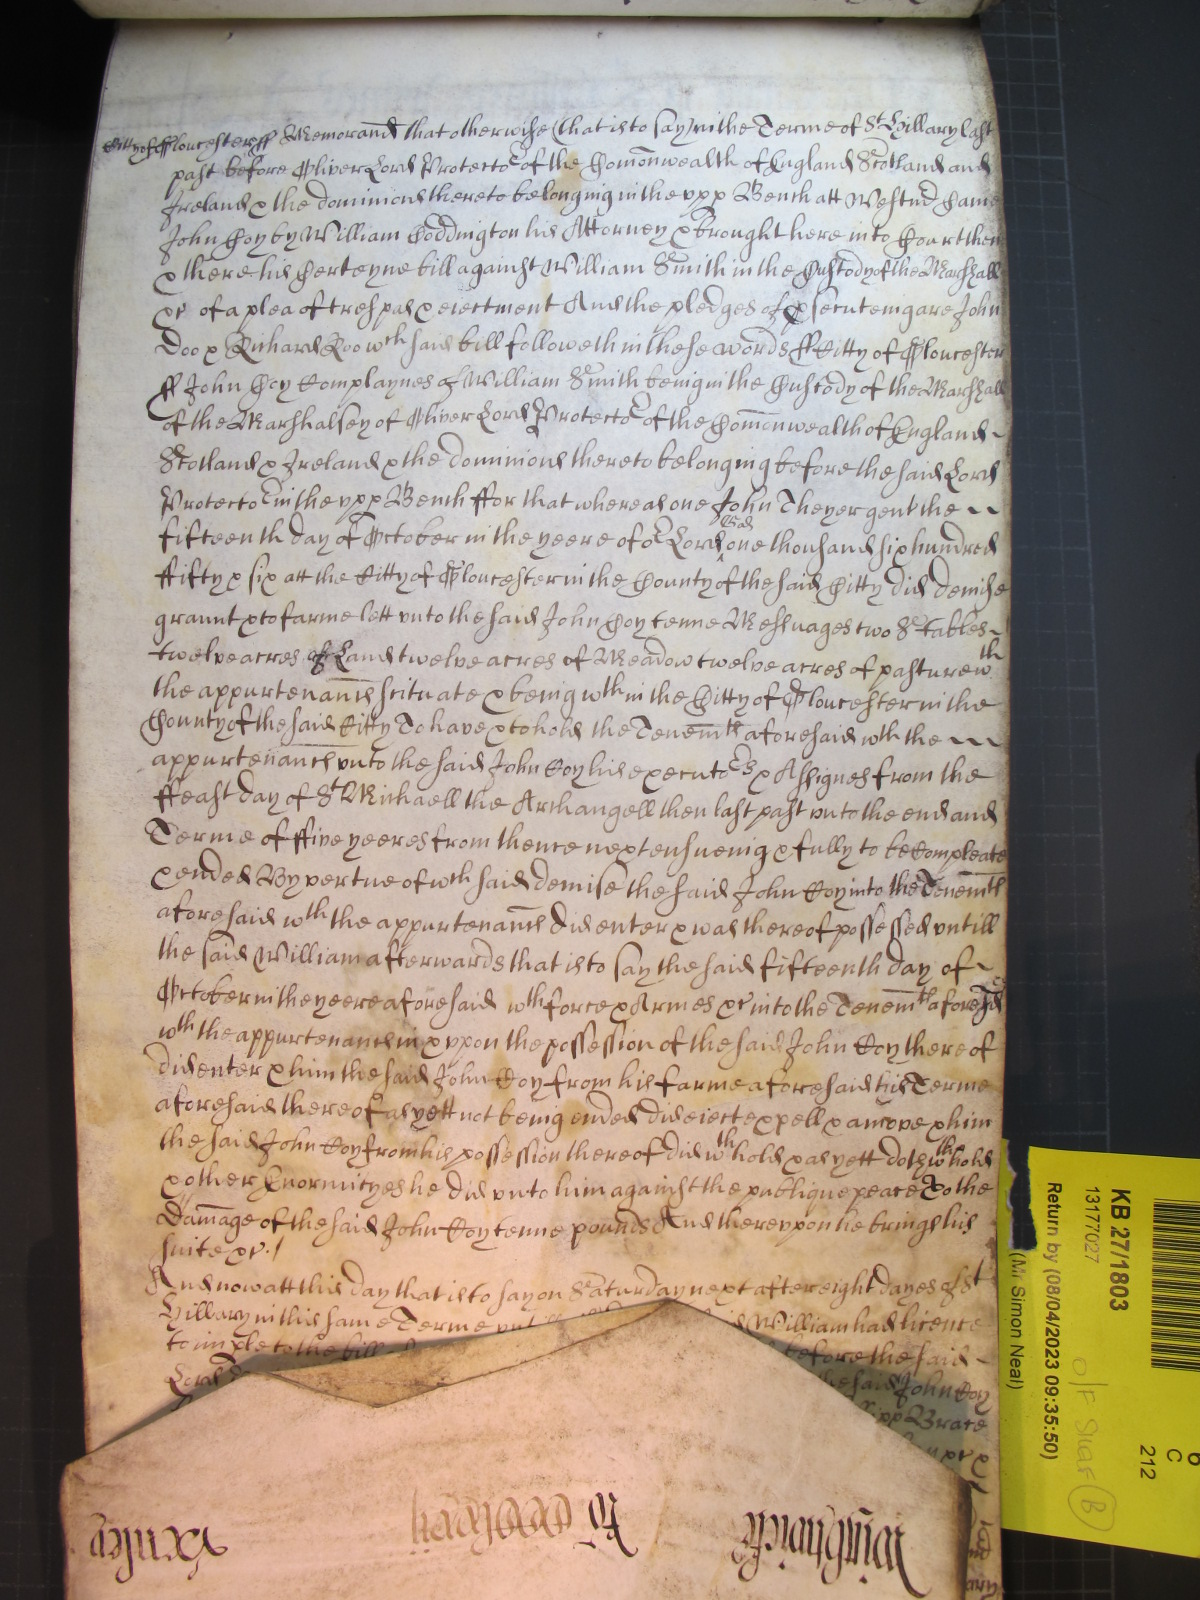 Citty of Gloucester ss Memorand that otherwise (that is to say) in the Terme of St Hillary last
past before Oliver Lord Protector of the Comonwealth of England Scotland and
Ireland & the dominions thereto belonging in the upp Bench att Westmr Came
John Coy by William Coddington his Attorney & brought here into Court then
& there his Certeyne bill against William Smith in the Custody of the Marshall
&c of a plea of trespas & eiectment And the pledges of psecuteing are John
Doo & Richard Roo wch said bill followeth in these words ss Citty of Gloucester
ss John Coy Complaynes of William Smith being in the Custody of the Marshall
of the Marshalsey of Oliver Lord Protector of the Comonwealth of England
Scotland & Ireland & the dominions thereto belonging before the said Lord
Protector in the upp Bench ffor that whereas one John Theyer gent the
fifteenth day of October in the yeere of or Lord God one thousand six hundred
ffifty & six att the Citty of Gloucester in the County of the said Citty did demise
graunt & to farme lett unto the said John Coy tenne Messuages two Stables
twelve acres of Land twelve acres of Meadow twelve acres of pasture wth
the appurtenancs scituate & being wthin the Citty of Gloucester in the
County of the said Citty To have & to hold the Tenemts aforesaid wth the
appurtenancs unto the said John Coy his executors & Assignes from the
ffeast day of St Michaell the Archangell then last past unto the end and
Terme of ffive yeeres from thence next ensueing & fully to be Compleate
& ended By vertue of wch said demise the said John Coy into the Tenemts
aforesaid wth the appurtenancs did enter & was thereof possessed untill
the said William afterwards that is to say the said fifteenth day of
October in the yeere aforesaid wth force & Armes &c into the Tenemts aforesd
wth the appurtenancs in & uppon the possession of the said John Coy thereof
did enter & him the said John Coy from his farme aforesaid his Terme
aforesaid thereof as yett not being ended did eiect expell & amove & him
the said John Coy from his possession thereof did wthhold & as yett doth wthhold
& other Enormityes he did unto him against the publique peace To the
Damage of the said John Coy tenne pounds And thereuppon he brings his
suite &c.
And now att this day that is to say on Saturday next after eight dayes of St
Hillary in this same Terme unt William had licence
to imple to the bill before the said
Lord he said John Coy
upp Bench
&c &
KB 27/1803
13177027
Return by (08/04/2023 09:35:50)
(Mr Simon Neal)
O/F Star B
6
C
212